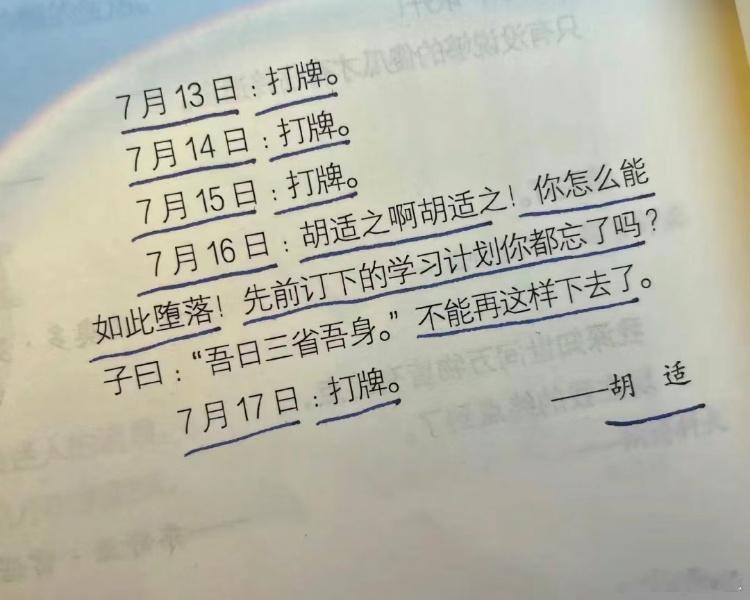 7月13日：打牌。
7月14日：打牌。
7月15日：打牌。
7月16日：胡适之啊胡适之！你怎么能
如此堕落！先前订下的学习计划你都忘了吗？
子曰：“吾日三省吾身。”不能再这样下去了。
7月17日：打牌。
——胡 适